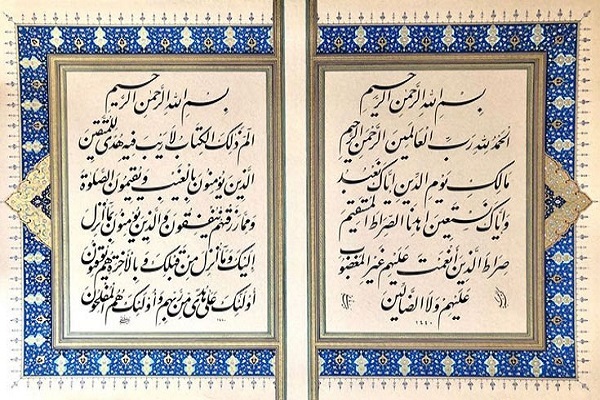 بِسْمِ اللهِ الرَّحْمٰنِ الرَّحِیمِ
الحَمْدُ لِلّٰهِ رَبِّ العَالَمینَ الرَّحْمٰنِ الرَّحیمِ
مَالِکِ یَوْمِ الدِّینِ اِیّاکَ نَعْبُدُ
وَاِیّاکَ نَسْتَعینُ اِهْدِنَا الصِّراطَ المُسْتَقیمَ
صِراطَ الَّذینَ اَنْعَمْتَ عَلَیْهِمْ غَیْرِ المَغْضُوبِ
عَلَیْهِمْ وَلَا الضّالّینَ
١٤٤٠
بِسْمِ اللهِ الرَّحْمٰنِ الرَّحِیمِ
الم ذٰلِکَ الْکِتَابُ لَا رَیْبَ فیهِ هُدًی لِلْمُتَّقینَ
الَّذینَ یُؤْمِنُونَ بِالْغَیْبِ وَیُقیمُونَ الصَّلٰوةَ
وَمِمّا رَزَقْنٰهُمْ یُنْفِقُونَ وَالَّذینَ یُؤْمِنُونَ بِمَا اُنْزِلَ
اِلَیْکَ وَمَا اُنْزِلَ مِنْ قَبْلِکَ وَبِالْاٰخِرَةِ هُمْ یُوقِنُونَ
اُولٰئِکَ عَلٰی هُدًی مِنْ رَبِّهِمْ وَاُولٰئِکَ هُمُ الْمُفْلِحُونَ